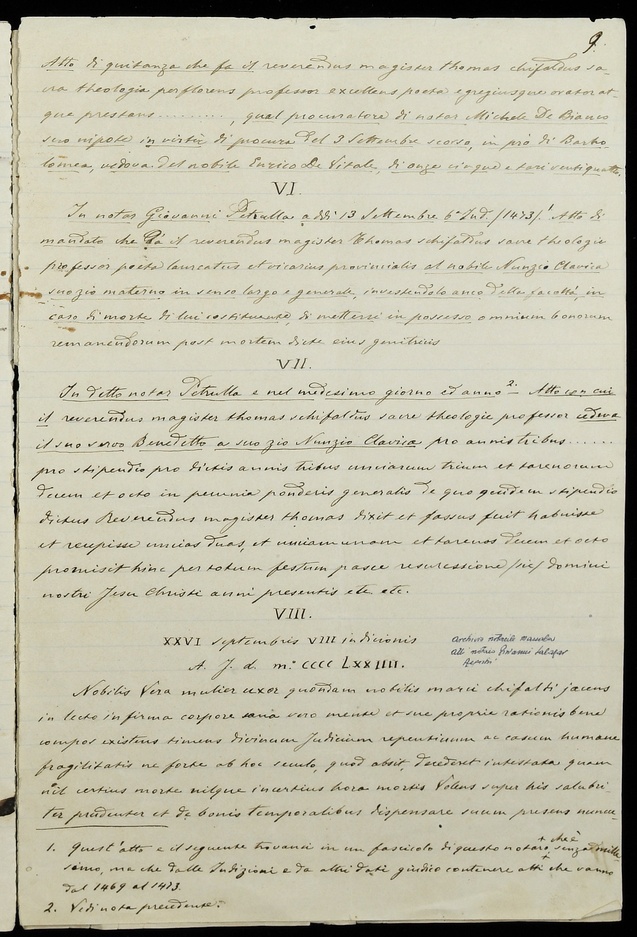 9.
Atto di quitanza che fa il reverendus magister thomas chifaldus sa-
cra theologia perflorens professor excellens poeta egregiusque orator at-
que prestans ........., qual procuratore di notar Michele De Bianco
suo nipote in virtù di procura del 3 Settembre scorso, in prò di Barto-
lomea, vedova del nobile Enrico De Vitale, di onze cinque e tarì ventiquattro.
VI.
In notar Giovanni Petrulla addì 13 Settembre 6ª Ind. (1473).¹ Atto di
mandato che fa il reverendus magister Thomas schifaldus sacre theologie
professor poeta laureatus et vicarius provincialis al nobile Nunzio Clavica
suo zio materno in senso largo e generale, investendolo anco della facoltà, in
caso di morte di lui costituente, di mettersi in possesso omnium bonorum
remanendorum post mortem dicte eius genitricis
VII.
In detto notar Petrulla e nel medesimo giorno ed anno ². Atto con cui
il reverendus magister thomas schifaldus sacre theologie professor cedeva
il suo servo Benedetto a suo zio Nunzio Clavica pro annis tribus ......
pro stipendio pro dictis annis tribus unciarum trium et tarenorum
decem et octo in pecunia ponderis generalis de quo quidem stipendio
dictus Reverendus magister thomas dixit et fassus fuit habuisse
et recepisse uncias duas, et unciam unam et tarenos decem et octo
promisit hinc per totum festum pasce resuressione (sic) domini
nostri Jesu Christi anni presentis etc etc.
VIII.
XXVI septembris VIII indicionis
A. J. d. m.º CCCC LXXIIII.
archivio notarile marsala
atti notaio Giovanni
Nobilis Vera mulier uxor quondam nobilis marci chifaldi jacens
in lecto infirma corpore sana vero mente et sue proprie rationis bene
compos existens timens divinum Judicium repentinum ac casum humane
fragilitatis ne forte ab hoc seculo, quod absit, decederet intestata quam
nil certius morte nilque incertius hora mortis Volens super his salubri-
ter prudenter et de bonis temporalibus dispensare suum presens nuncu-
1. Quest'atto e il seguente trovansi in un fascicolo di questo notaro, che è senza mille-
simo, ma che dalle Indizioni e da altri dati giudico contenere atti che vanno
dal 1469 al 1473.
2. Vedi nota precedente.